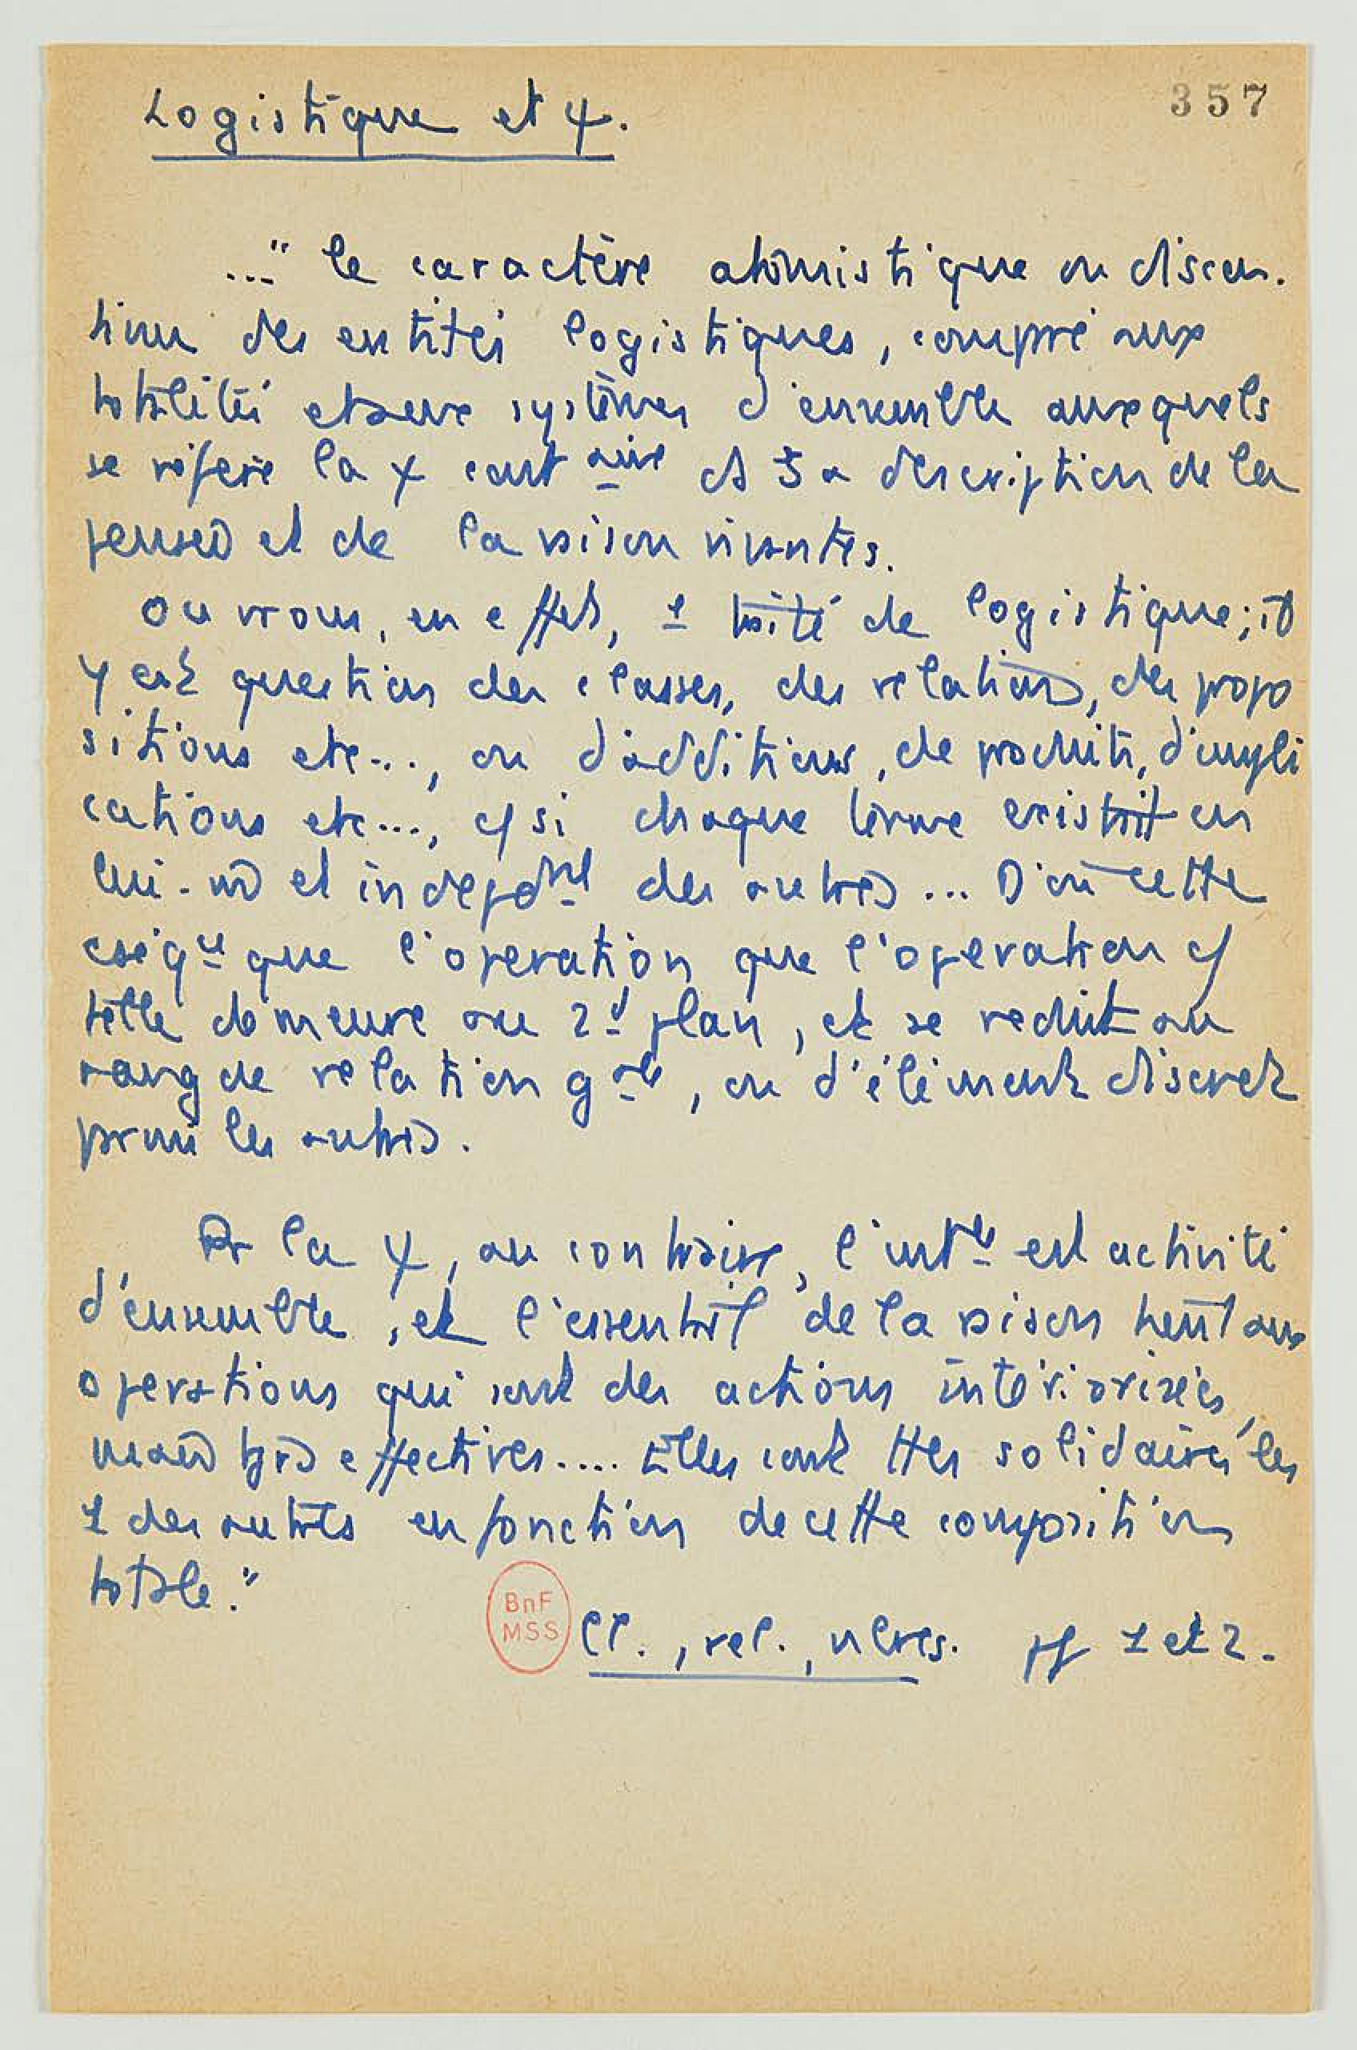 Logistique et ψ.
357
..." le caractère atomistique ou discon-
tinu des entités logistiques, comparé aux
totalités et aux systèmes d'ensemble auxquels
se réfère la ψ cont aire ds sa description de la
pensée et de la raison vivantes.
Ouvrons, en effet, 1 traité de logistique; il
y est question des classes, des relations, des propo
sitions etc..., ou d'additions, de produits, d'impli
cations etc..., c/ si chaque terme existait en
lui-mê et indépdmt des autres ... D'où cette
cséqce que l'opération que l'opération c/
telle demeure au 2d plan, et se réduit au
rang de relation gale, ou d'élément discret
parmi les autres.
Pr la ψ, au contraire, l'intce est activité
d'ensemble, et l'essentiel de la raison tient aux
opérations qui sont des actions intériorisées,
mais tjrs effectives.... Elles sont ttes solidaires les
1 des autres en fonction de cette composition
totale."
BnF
MSS
Cl., rel., nbres. pp 1 et 2.